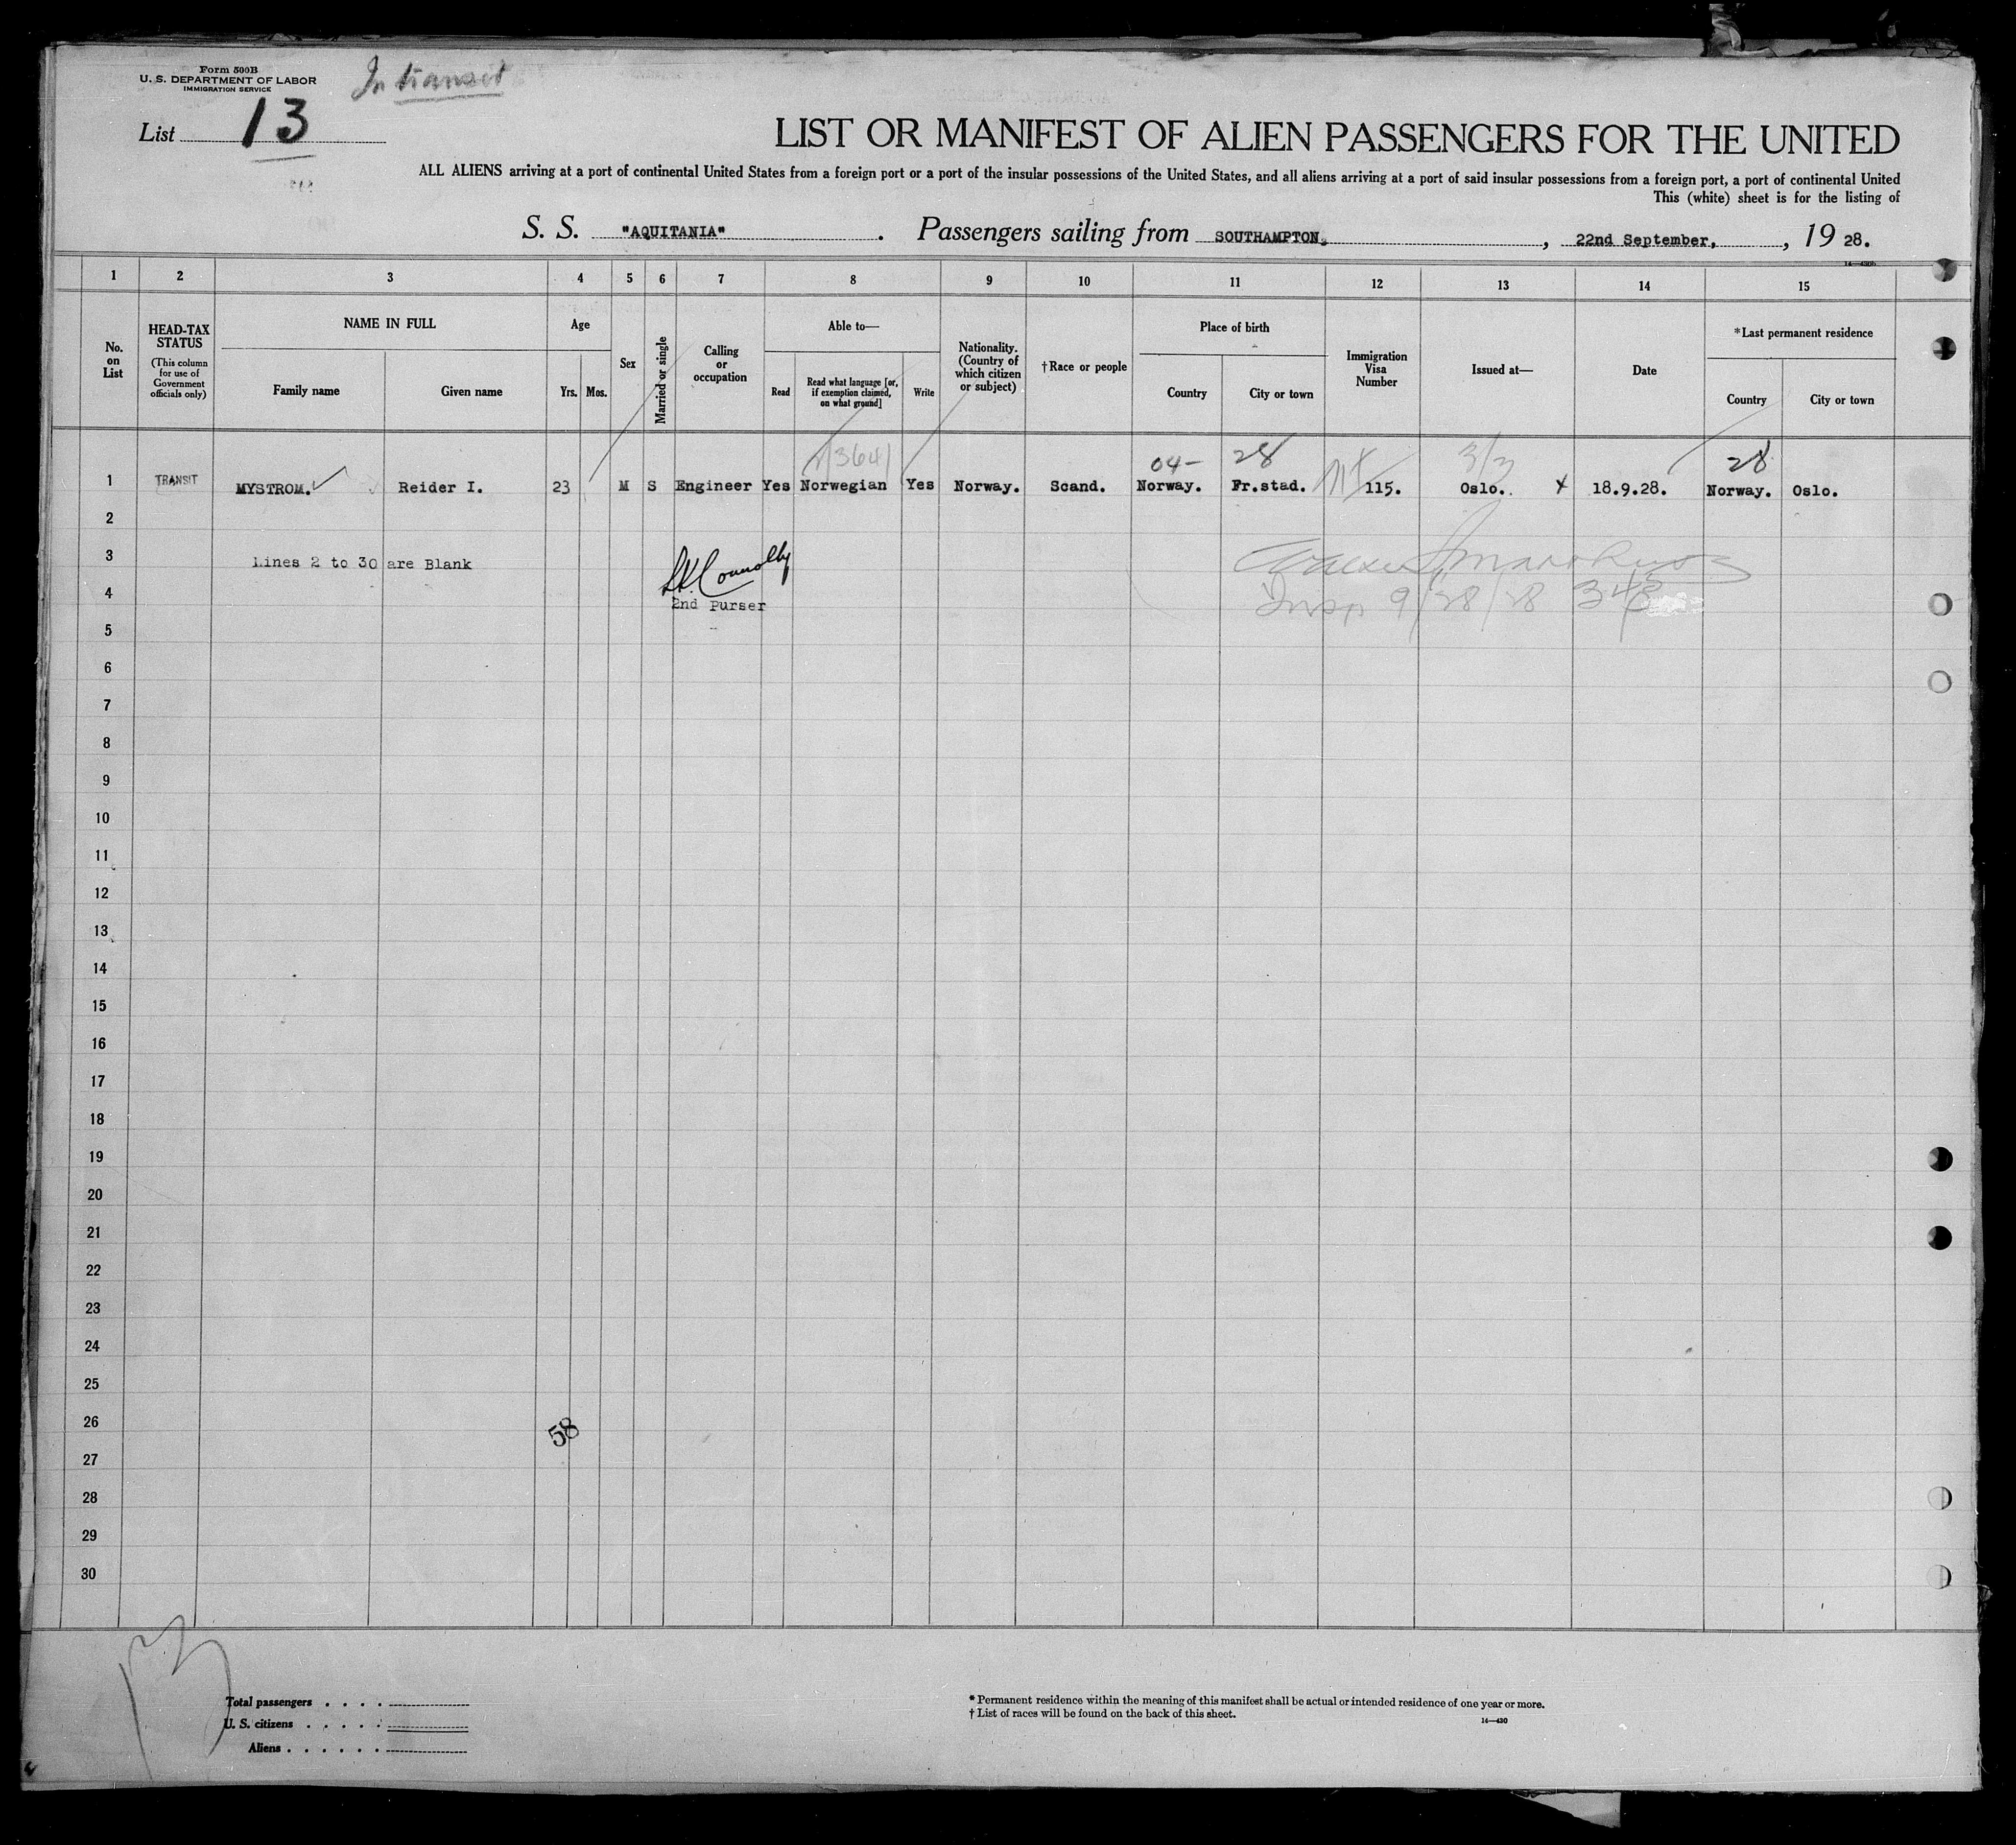 Form 500B
U. S. DEPARTMENT OF LABOR
IMMIGRATION SERVICE
In transit
List 13
LIST OR MANIFEST OF ALIEN PASSENGERS FOR THE UNITED
ALL ALIENS arriving at a port of continental United States from a foreign port or a port of the insular possessions of the United States, and all aliens arriving at a port of said insular possessions from a foreign port, a port of continental United
This (white) sheet is for the listing of
S. S. "AQUITANIA". Passengers sailing from SOUTHAMPTON, 22nd September, , 19 28.
1 2 3 4 5 6 7 8 9 10 11 12 13 14 15
No. on List
HEAD-TAX STATUS
(This column for use of Government officials only)
NAME IN FULL
Family name Given name
Age
Yrs. Mos.
Sex
Married or single
Calling or occupation
Able to—
Read
Read what language [or, if exemption claimed, on what ground]
Write
Nationality. (Country of which citizen or subject)
†Race or people
Place of birth
Country City or town
Immigration Visa Number
Issued at—
Date
*Last permanent residence
Country City or town
04- 28 3/3 28
1 TRANSIT MYSTROM. Reider I. 23 M S Engineer Yes Norwegian Yes Norway. Scand. Norway. Fr.stad. 115. Oslo. 18.9.28. Norway. Oslo.
2
3 Lines 2 to 30 are Blank
Connolly
4 2nd Purser
Insp 9/28/28
5
6
7
8
9
10
11
12
13
14
15
16
17
18
19
20
21
22
23
24
25
26
58
27
28
29
30
Total passengers . . . .
U. S. citizens . . . . .
Aliens . . . . . .
* Permanent residence within the meaning of this manifest shall be actual or intended residence of one year or more.
† List of races will be found on the back of this sheet.
14—430